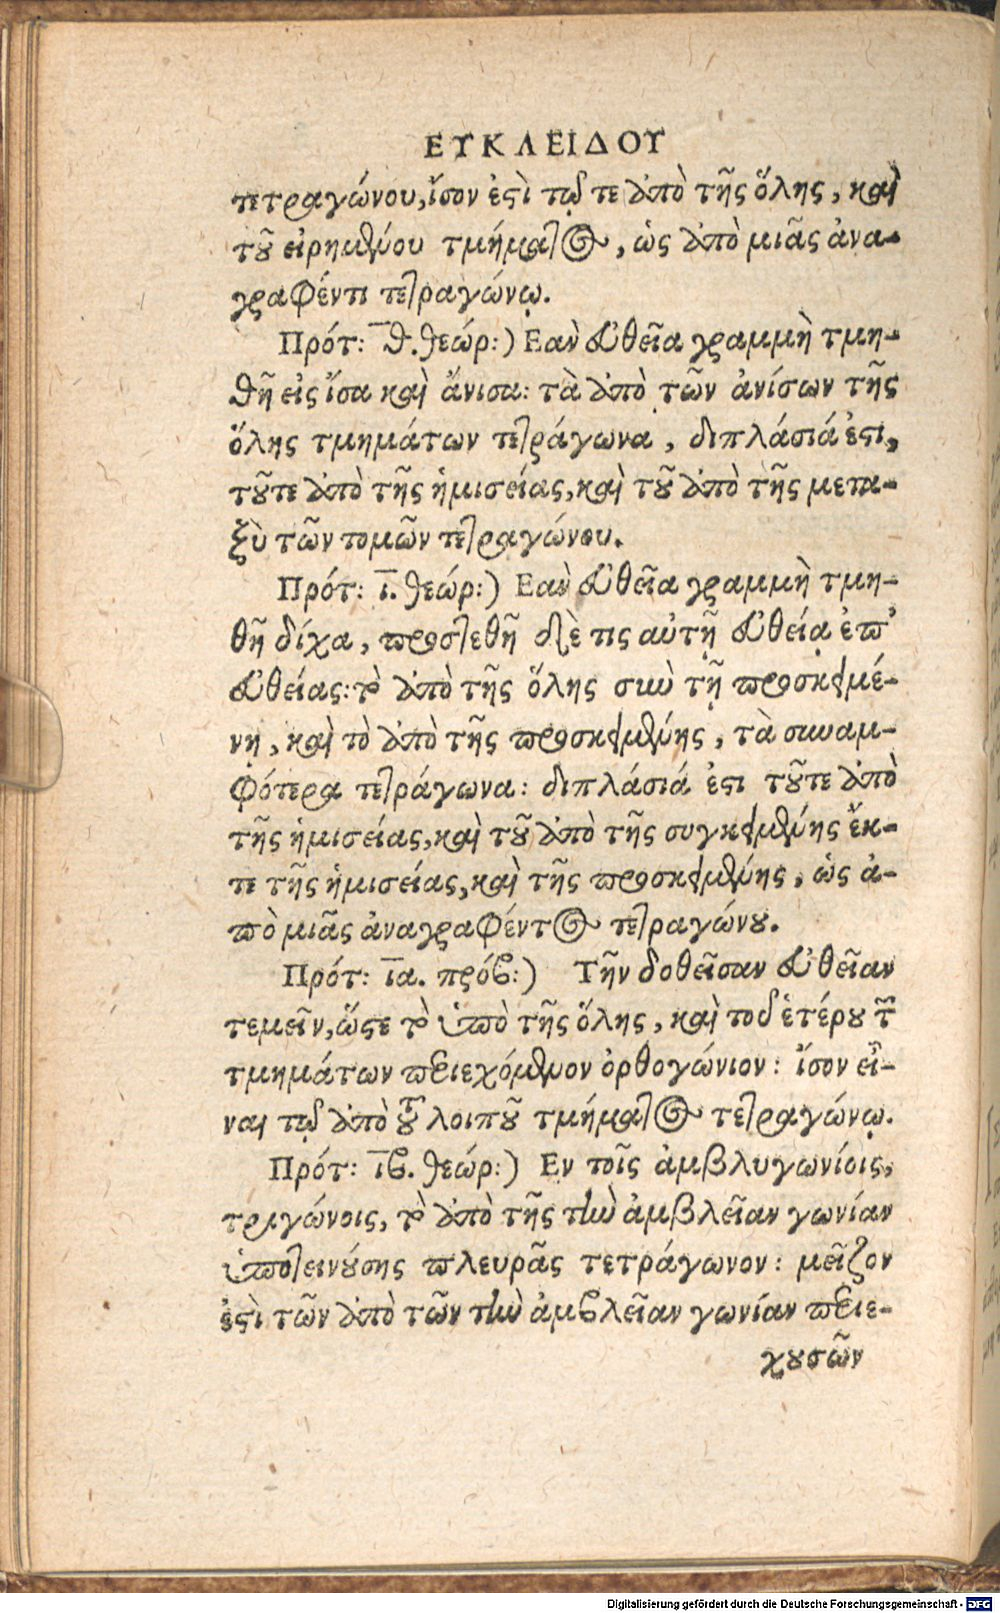 ΕΥΚΛΕΙΔΟΥ
τετραγώνου, ἴσον ἐϛὶ τῷ τε ἀπὸ τῆς ὅλης, καὶ
τοῦ εἰρημένου τμήματος, ὡς ἀπὸ μιᾶς ἀνα-
γραφέντι τετραγώνῳ.
Πρότ: θ̅. θεώρ:) Εαν εὐθεῖα γραμμὴ τμη-
θῇ εἰς ἴσα καὶ ἄνισα: τὰ ἀπὸ τῶν ἀνίσων τῆς
ὅλης τμημάτων τετράγωνα, διπλάσιά ἐϛι,
τοῦτε ἀπὸ τῆς ἡμισείας, καὶ τοῦ ἀπὸ τῆς μετα-
ξὺ τῶν τομῶν τετραγώνου.
Πρότ: ι̅. θεώρ:) Εαν εὐθεῖα γραμμὴ τμη-
θῇ δίχα, προστεθῇ δέ τις αὐτῇ εὐθεῖα ἐπ’
εὐθείας: τὸ ἀπὸ τῆς ὅλης σὺν τῇ προσκειμέ-
νῃ, καὶ τὸ ἀπὸ τῆς προσκειμένης, τὰ συναμ-
φότερα τετράγωνα: διπλάσιά ἐϛι τοῦτε ἀπὸ
τῆς ἡμισείας, καὶ τοῦ ἀπὸ τῆς συγκειμένης ἔκ-
τε τῆς ἡμισείας, καὶ τῆς προσκειμένης, ὡς ἀ-
πὸ μιᾶς ἀναγραφέντος τετραγώνου.
Πρότ: ια̅. πρόβ:) Τὴν δοθεῖσαν εὐθεῖαν
τεμεῖν, ὥϛε τὸ ὑπὸ τῆς ὅλης, καὶ τοῦ ἑτέρου τῶν
τμημάτων περιεχόμενον ὀρθογώνιον: ἴσον εἶ-
ναι τῷ ἀπὸ τοῦ λοιποῦ τμήματος τετραγώνῳ.
Πρότ: ιβ̅. θεώρ:) Εν τοῖς ἀμβλυγωνίοις,
τριγώνοις, τὸ ἀπὸ τῆς τὴν ἀμβλεῖαν γωνίαν
ὑποτεινούσης πλευρᾶς τετράγωνον: μεῖζον
ἐϛὶ τῶν ἀπὸ τῶν τὴν ἀμβλεῖαν γωνίαν περιε-
χουσῶν
Digitalisierung gefördert durch die Deutsche Forschungsgemeinschaft - DFG